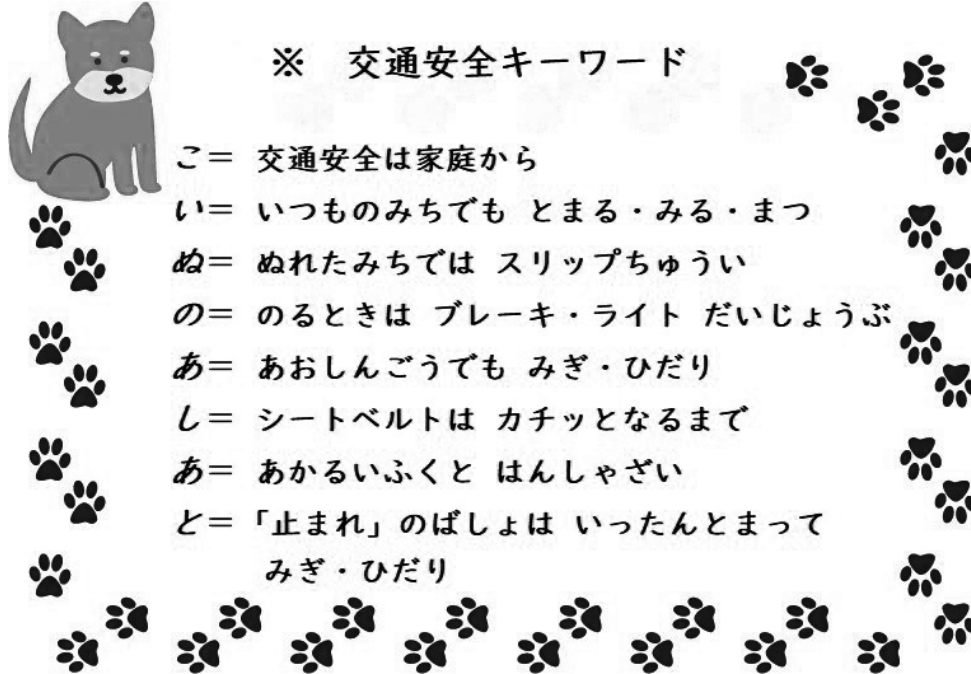 ※ 交通安全キーワード
こ= 交通安全は家庭から
い= いつものみちでも とまる・みる・まつ
ぬ= ぬれたみちでは スリップちゅうい
の= のるときは ブレーキ・ライト だいじょうぶ
あ= あおしんごうでも みぎ・ひだり
し= シートベルトは カチッとなるまで
あ= あかるいふくと はんしゃざい
と= 「止まれ」のばしょは いったんとまって
みぎ・ひだり